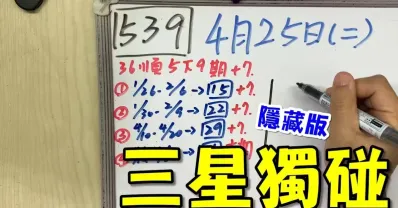 539 4月25日(二)
36順5下9期+7.
① 1/26-2/6→15+7.
② 1/30-2/9→22+7.
③ 4/10-4/20→29+7.
隱藏版
三星獨碰